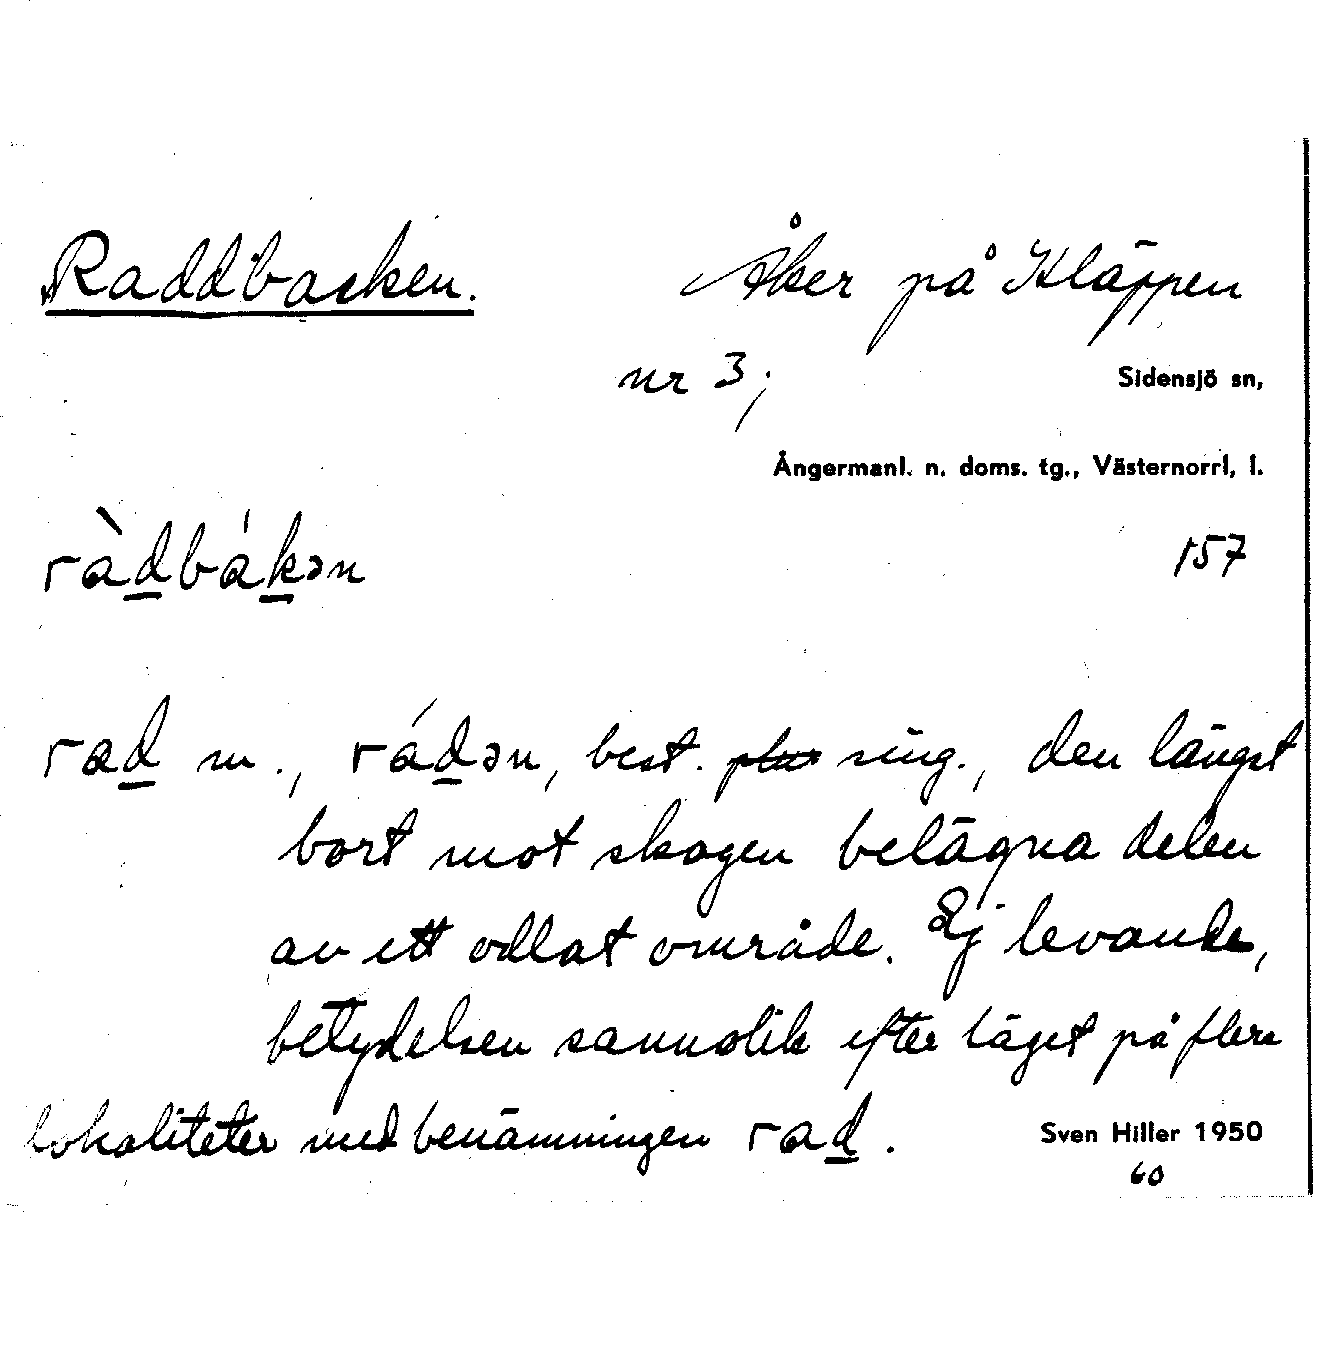 Raddbacken. Åker på Kläppen
nr 3; Sidensjö sn,
Ångermanl. n. doms. tg., Västernorrl, l.
ràd̲bák̲ən 157
rad̲ m., rád̲ən, best. ~~plur~~ sing., den längst
bort mot skogen belägna delen
av ett odlat område. Ej levande,
betydelsen sannolik efter läget på flera
lokaliteter med benämningen rad̲.
Sven Hiller 1950
60